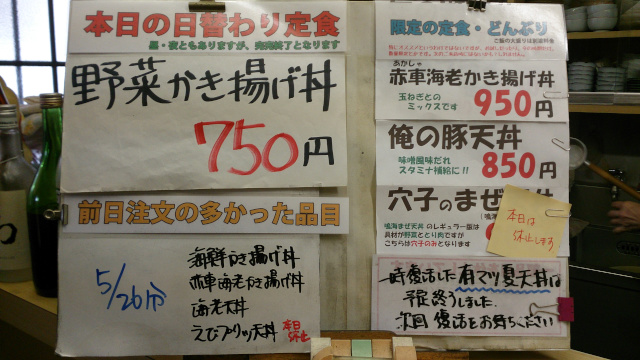 本日の日替わり定食
昼・夜ともありますが、完売終了となります
野菜かき揚げ丼
750円
前日注文の多かった品目
5/26分
海鮮かき揚げ丼
赤車海老かき揚げ丼
海老天丼
えびプリッツ天丼 本日休止
限定の定食・どんぶり
ご飯の大盛りは別途料金
あかしゃ
赤車海老かき揚げ丼
玉ねぎとの
ミックスです
950円
俺の豚天丼
味噌風味だれ
スタミナ補給に!!
850円
穴子のまぜ
鳴海まぜ天丼のレギュラー版は
具材が野菜ととり肉ですが
こちらは穴子のみとなります
本日は
休止します
一時復活した有マツ夏天丼は
予定終うしました
次回復活をお待ちください